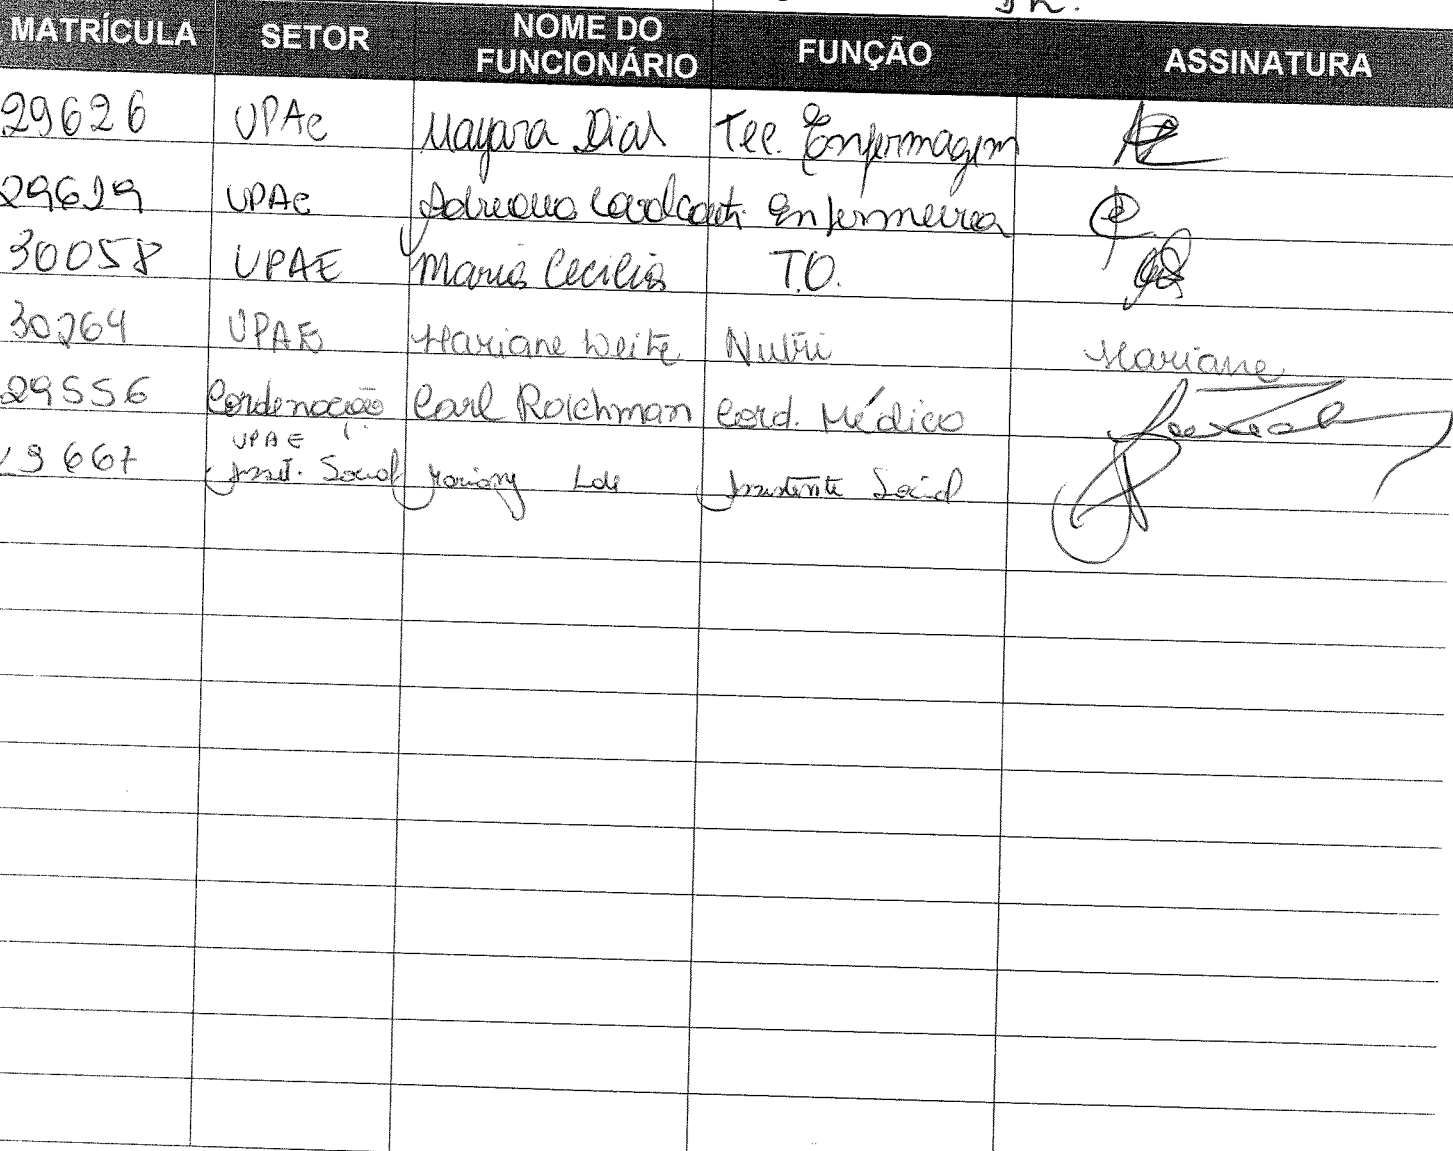 MATRÍCULA SETOR NOME DO FUNCIONÁRIO FUNÇÃO ASSINATURA
29626 UPAe Mayara Dias Tec. Enfermagem
29629 UPAe Adriana Cavalcanti Enfermeira
30058 UPAE Maria Cecilia T.O.
30264 UPAE Mariane Leite Nutri Mariane
29556 Cordenação Carl Roichman Cord. Médico
UPAE
9667 Assist. Social Mariany Assistente Social